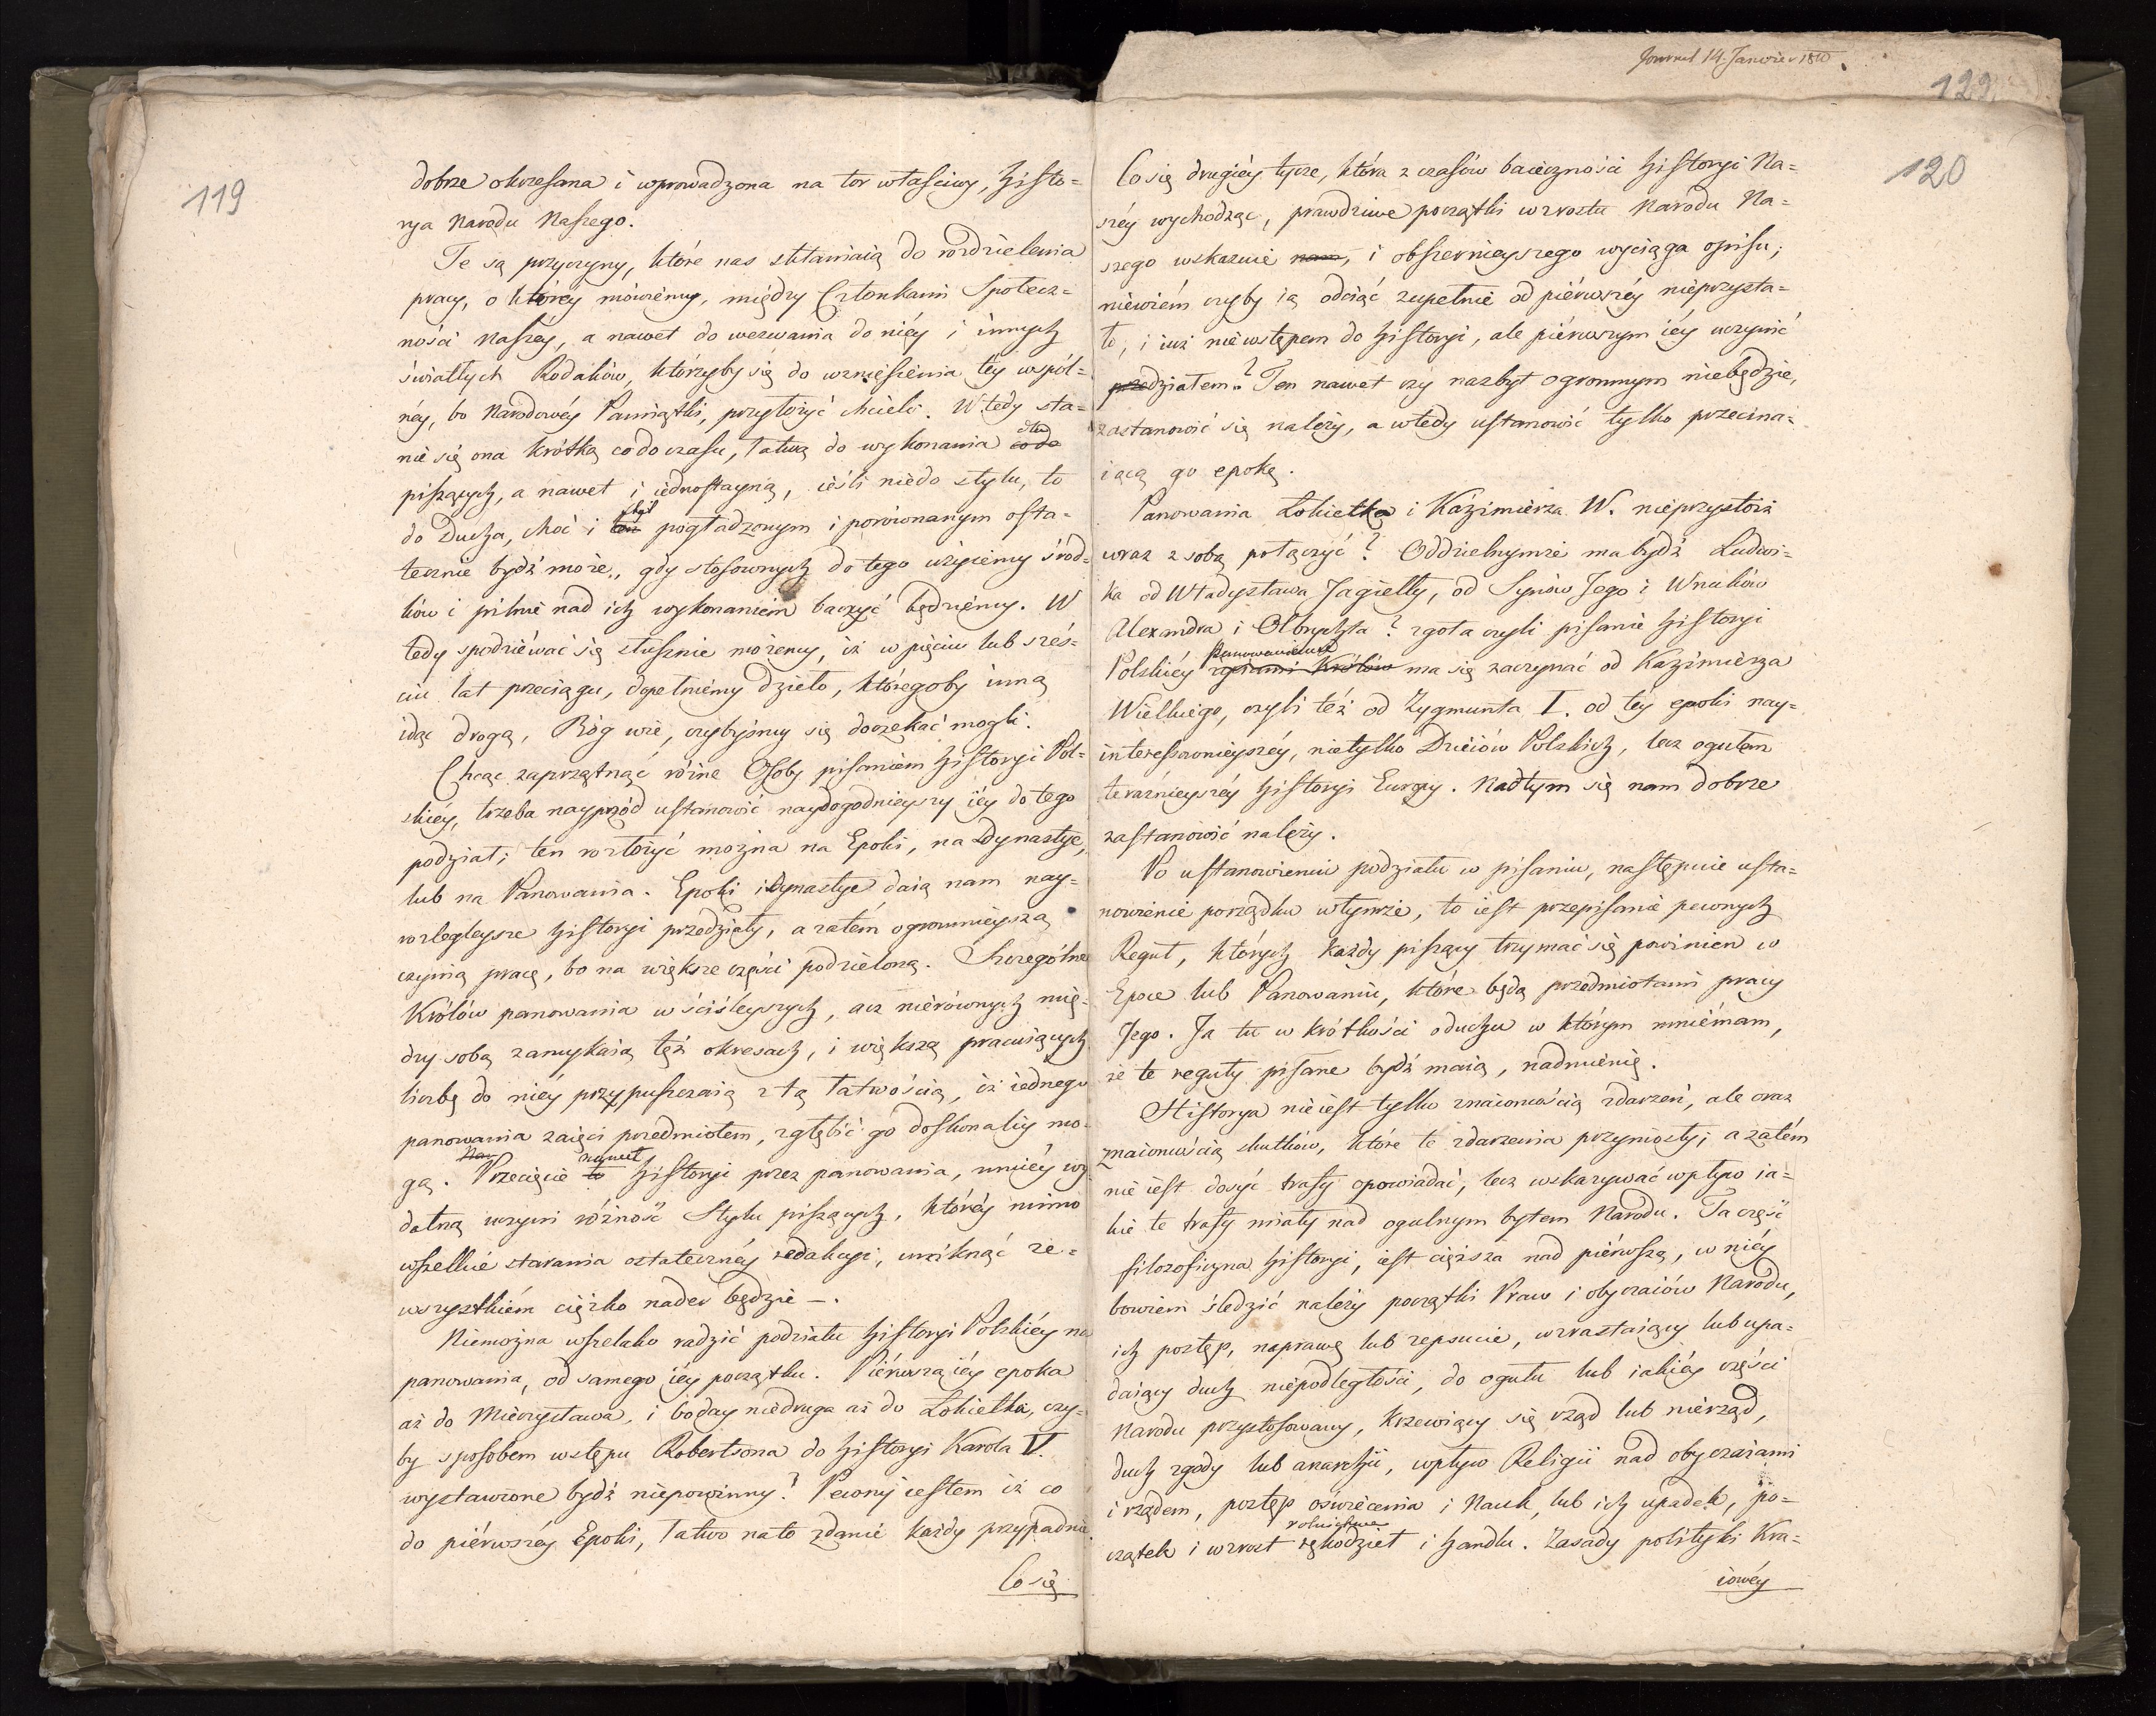 119
dobrze okrzesana i wprowadzona na tor własciwy, Histo=
rya Narodu Naszego.
Te są przyczyny, które nas skłaniaią do rozdzielenia
pracy, o którey mówiemy, między Członkami Społecz=
ności Naszey, a nawet do wezwania do niéy i innych
światłych Rodaków, którzyby się do wzniesienia tey wspól=
néy, bo Narodowéy Pamiątki, przyłożyć chcieli. W tedy sta=
nie się ona krótką co do czasu, łatwą do wykonania dla
piszących, a nawet i iednostayną, ieśli nie do stylu, to
do Ducha, choć i styl pogładzonym i porównanym osta=
tecznie bydź może, gdy stosownych do tego użyiemy środ=
ków i pilnie nad ich wykonaniem baczyć będziemy. W
tedy spodziéwać się słusznie możemy, iż w pięciu lub sześ=
ciu lat przeciągu, dopełniémy dzieło, któregoby inną
idąc drogą, Bóg wie, czybyśmy się doczekać mogli.
Chcąc zaprzątnąć różne Osoby pisaniem Historyi Pol=
skiéy, trzeba nayprzód ustanowić naydogodnieyszy iéy do tego
podział; ten rozłożyć można na Epoki, na Dynastye,
lub na Panowania. Epoki i Dynastye daią nam nay=
rozlegleysze Historyi przedziały, a zatém ogromnieyszą
czynią pracę, bo na większe części podzieloną. Szczególne
Królów panowania w ściśleyszych, acz nierównych mię=
dzy sobą zamykaią też okresach, i większą pracuiących
liczbę do niéy przypuszczaią z tą łatwością, iż iednego
panowania zaięci przedmiotem, zgłębić go doskonaliéy mo=
gą. Przecięcie nawet Historyi przez panowania, mniéy wy=
datną uczyni różność Stylu piszących, któréy mimo
wszelkie starania ostatecznéy redakcyi, uniknąć ze=
wszystkiém ciężko nader będzie —.
Niemożna wszelako radzić podziału Historyi Polskiéy na
panowania, od samego iéy początku. Piérwsza iéy epoka
aż do Mieczysława, i boday niedruga aż do Łokietka, czy=
by sposobem wstępu Robertsona do Historyi Karola V.
wystawione bydź niepowinny? Pewny iestem iż co
do piérwszéy Epoki, łatwo na to zdanie każdy przypadnie.
Co się
Journal 14. Janvier 1810.
122
120
Co się drugiéy tycze, która z czasów baieczności Historyi Na=
széy wychodząc, prawdziwe początki wzrostu Narodu Na=
szego wskazuie nam, i obszernieyszego wyciąga opisu;
niewiém czyby ią odciąć zupełnie od piérwszéy nieprzysta=
ło, i iuż nie wstępem do Historyi, ale piérwszym iéy uczynić
przedziałem? Ten nawet czy nazbyt ogromnym niebędzie,
zastanowić się należy, a wtedy ustanowić tylko przecina=
iącą go epokę.
Panowania Łokietka i Kázimiérza W. nieprzystoiż
wraz z sobą połączyć? Oddzielnymże ma bydź Ludwi=
ka od Władysława Jagiełły, od Synów Jego i Wnuków
Alexandra i Olbrychta? zgoła czyli pisanie Historyi
Polskiéy panowaniami Królów ma się zaczynać od Kazimiérza
Wielkiego, czyli też od Zygmunta I. od téy epoki nay=
interessownieyszéy, nietylko Dzieiów Polskich, lecz ogułem
teraźnieyszéy Historyi Europy. Nad tym się nam dobrze
zastanowić należy.
Po ustanowieniu podziału w pisaniu, następuie usta=
nowienie porządku w tymże, to iest przepisanie pewnych
Reguł, których każdy piszący trzymać się powinien w
Epoce lub Panowaniu, które będą przedmiotami pracy
Jego. Ja tu w krótkości o duchu w którym mniémam,
że te reguły pisane bydź maią, nadmienię.
Historya nie iest tylko znaiomością zdarzeń, ale oraz
znaiomością skutków, które te zdarzenia przyniosły; a zatém
nie iest dosyć trafy opowiadać, lecz wskazywać wpływ ia=
ki te trafy miały nad ogulnym bytem Narodu. Ta część
filozoficzna Historyi, iest cięższa nad piérwszą, w niéy
bowiem śledzić należy początki Praw i obyczaiów Narodu,
ich postęp, naprawę lub zepsucie, wzrastaiący lub upa=
daiący duch niepodległości, do ogułu lub iakiéy części
Narodu przystosowany, krzewiący się rząd lub nierząd,
duch zgody lub anarchii, wpływ Religii nad obyczaiami
i rządem, postęp oświécenia i Nauk, lub ich upadek, po=
czątek i wzrost rolnictwa rękodzieł i handlu. Zasady polityki Kra=
iowéy